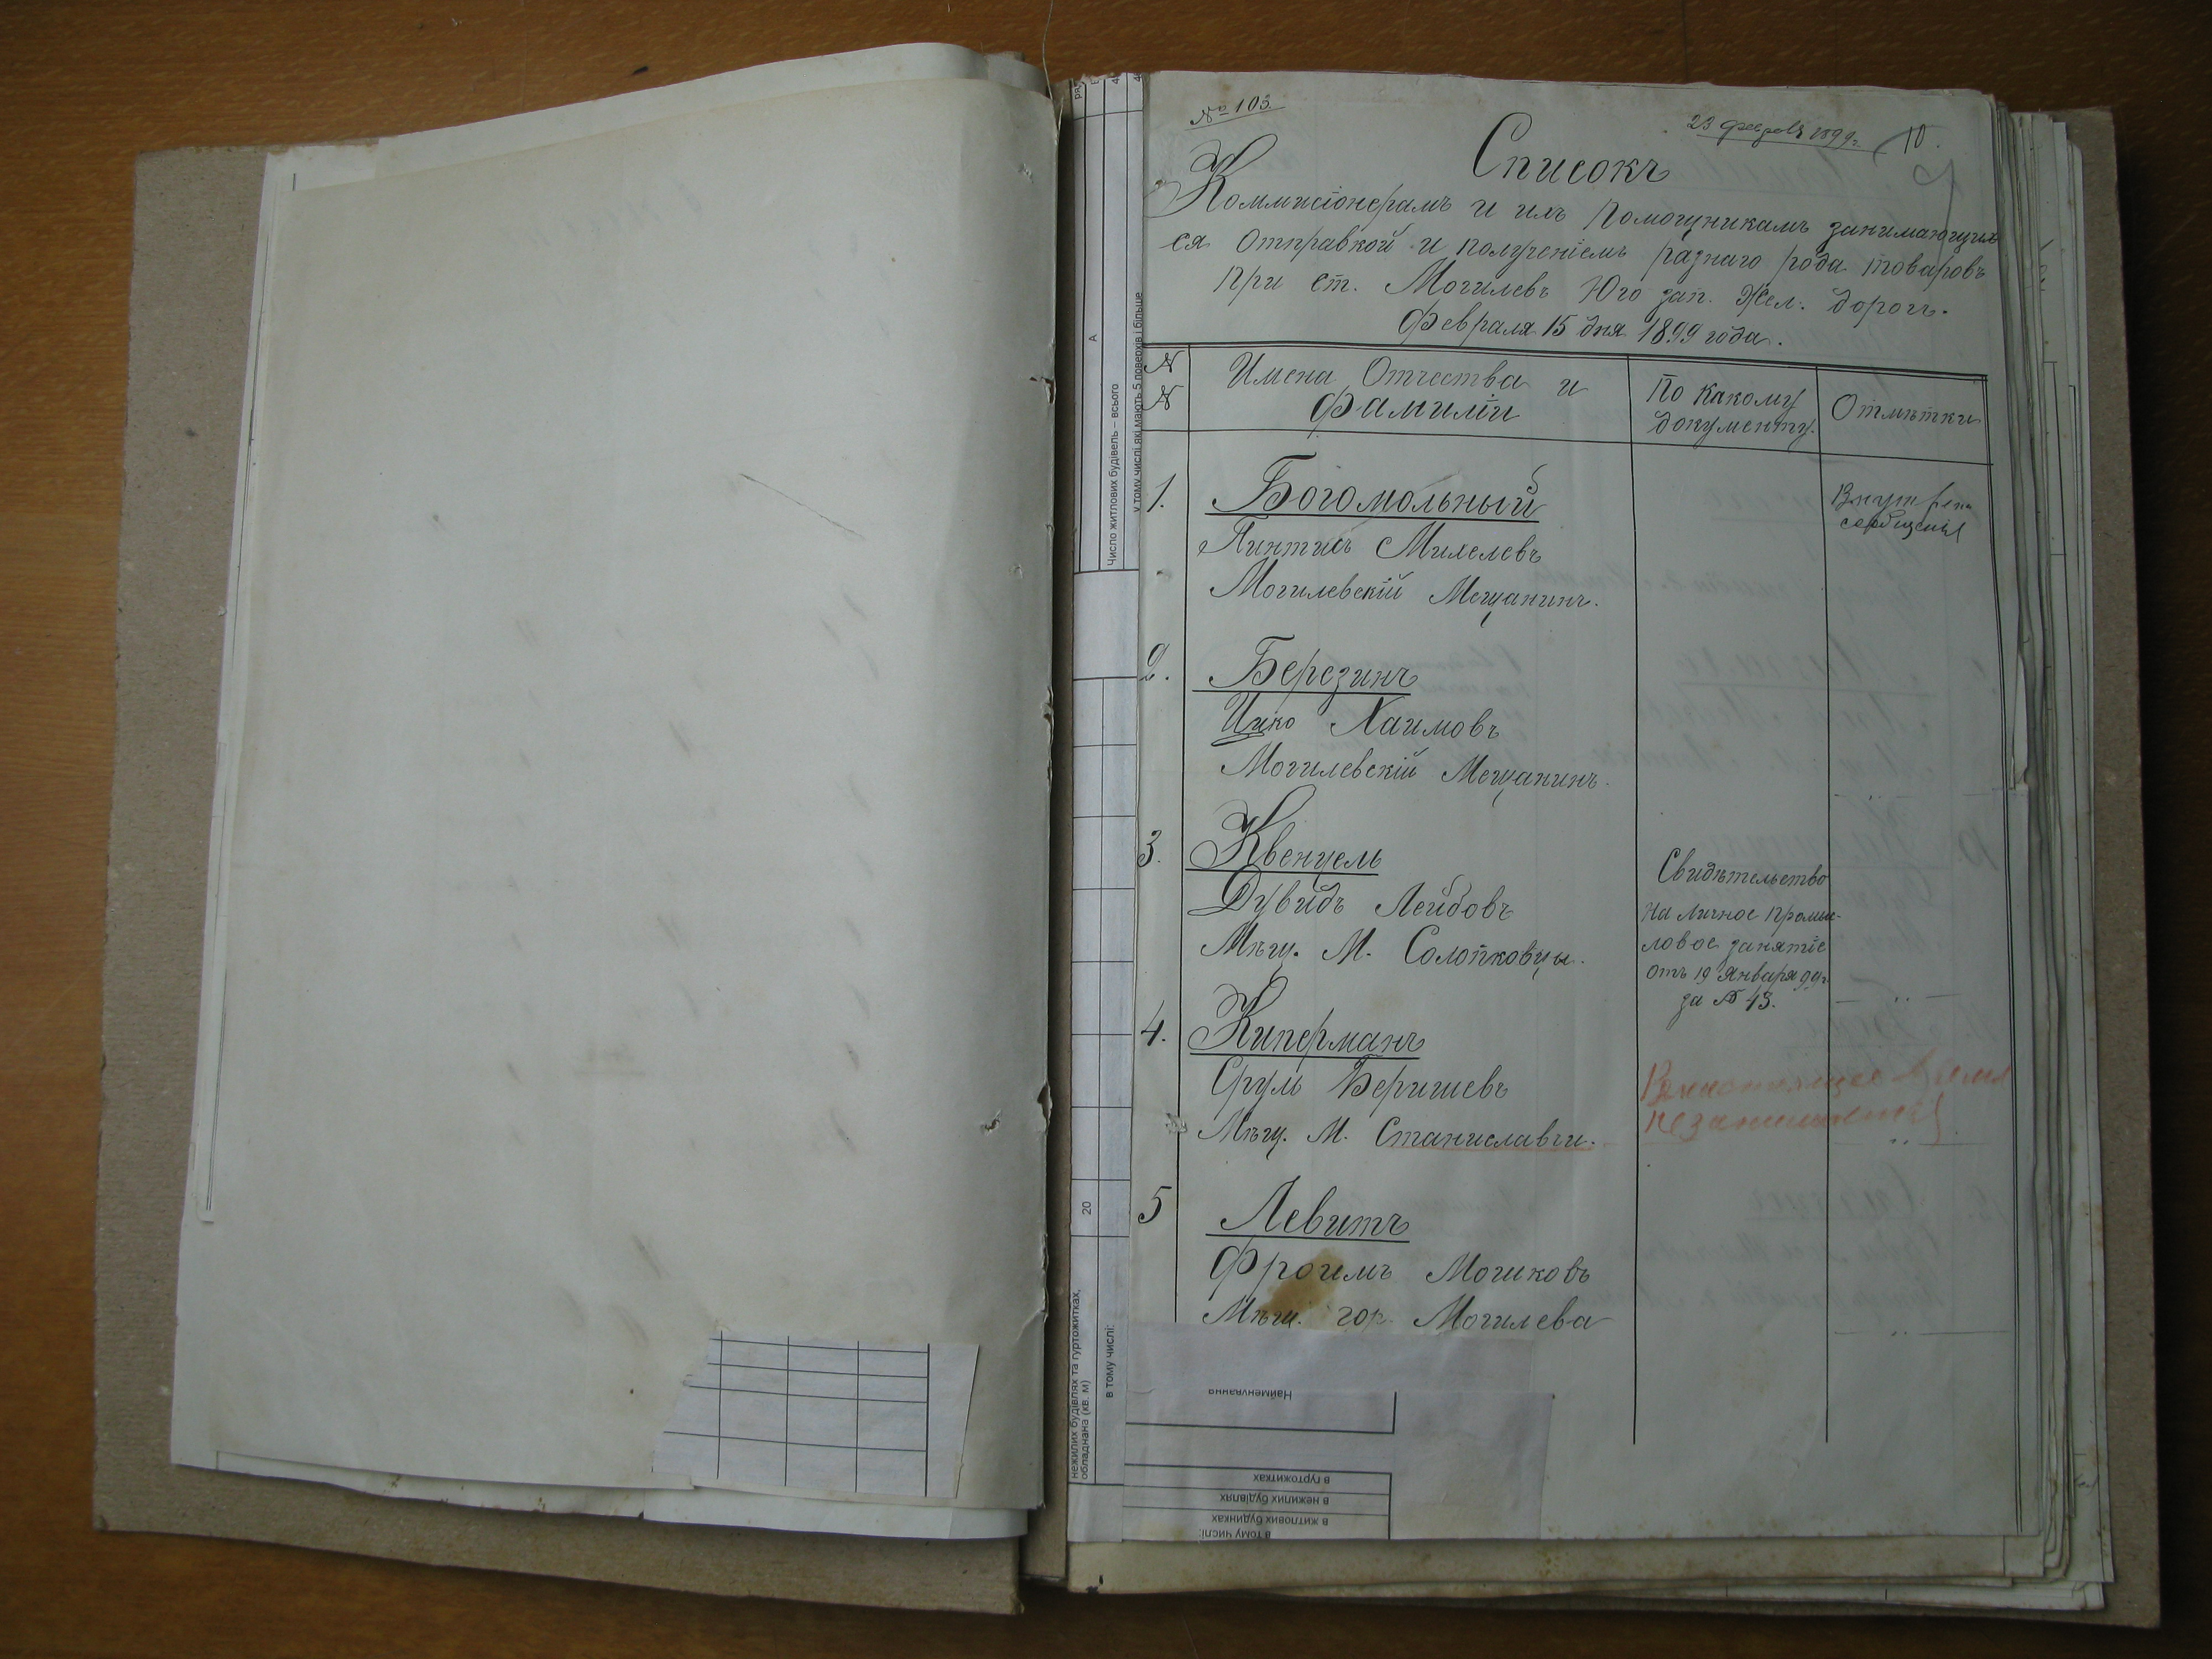 № 103.
23 февраля 1899 г.
10.
Списокъ
Коммисіонерамъ и ихъ Помощникамъ занимающих
ся Отправкой и полученіемъ разнаго рода товаровъ
При ст. Могилевъ Юго зап. Жел. дорогъ.
Февраля 15 дня 1899 года.
№ №
Имена Отчества и
Фамиліи
По какому
документу.
Отмѣтки
1.
Богомольный
Пинтись Михелевъ
Могилевскій Мещанинъ.
Внутрен
сообщенія
2.
Березинъ
Ицко Хаимовъ
Могилевскій Мещанинъ.
3.
Квенцель
Дувидъ Лейбовъ
Мѣщ. М. Солопковцы.
Свидѣтельство
на личное промы-
ловое занятіе
отъ 19 Января 99 г.
за № 43.
— „ —
4.
Киперманъ
Сруль Беришевъ
Мѣщ. М. Станиславчи.
В настоящее время
не занимается
— „ —
5
Левитъ
Фроимъ Мошковъ
Мѣщ. гор. Могилева
— „ —
А
Число житлових будівель – всього
у тому числі які мають 5 поверхів і більше
20
нежилих будівлях та гуртожитках,
обладнана (кв. м)
в тому числі:
Найменування
в гуртожитках
в нежилих будівлях
в житлових будинках
в тому числі: